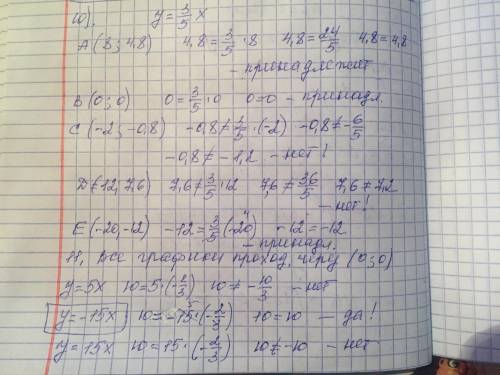 10). y = 3/5 x
A (8; 4,8) 4,8 = 3/5 · 8 4,8 = 24/5 4,8 = 4,8
– принадлежит
B (0; 0) 0 = 3/5 · 0 0=0 – принадл.
C (-2; -0,8) -0,8 ≠ 3/5 · (-2) -0,8 ≠ -6/5
-0,8 ≠ -1,2 – нет!
D (12; 7,6) 7,6 ≠ 3/5 · 12 7,6 ≠ 36/5 7,6 ≠ 7,2
– нет!
E (-20; -12) -12 = 3/5 (-20) -12 = -12
– принадл.
11, Все графики проход. через (0; 0)
y = 5x 10 = 5 · (-2/3) 10 ≠ -10/3 – нет
y = -15x 10 = -15 · (-2/3) 10 = 10 – да!
y = 15x 10 = 15 · (-2/3) 10 ≠ -10 – нет